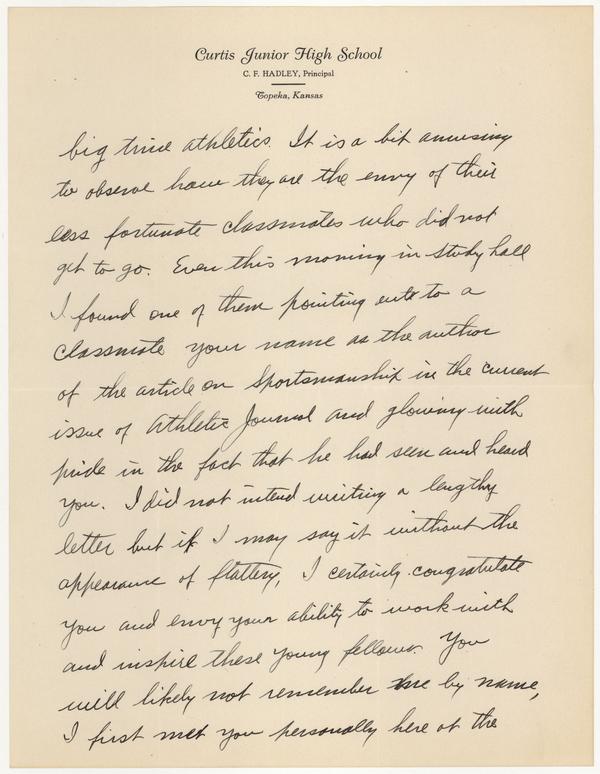 Curtis Junior High School
C. F. HADLEY, Principal
Topeka, Kansas
big time athletics. It is a bit amusing
to observe how they are the envy of their
less fortunate classmates who did not
get to go. Even this morning in study hall
I found one of them pointing out to a
classmate your name as the author
of the article on Sportsmanship in the current
issue of Athletic Journal and glowing with
pride in the fact that he had seen and heard
you. I did not intend writing a lengthy
letter but if I may say it without the
appearance of flattery, I certainly congratulate
you and envy your ability to work with
and inspire these young fellows. You
will likely not remember me by name,
I first met you personally here at the